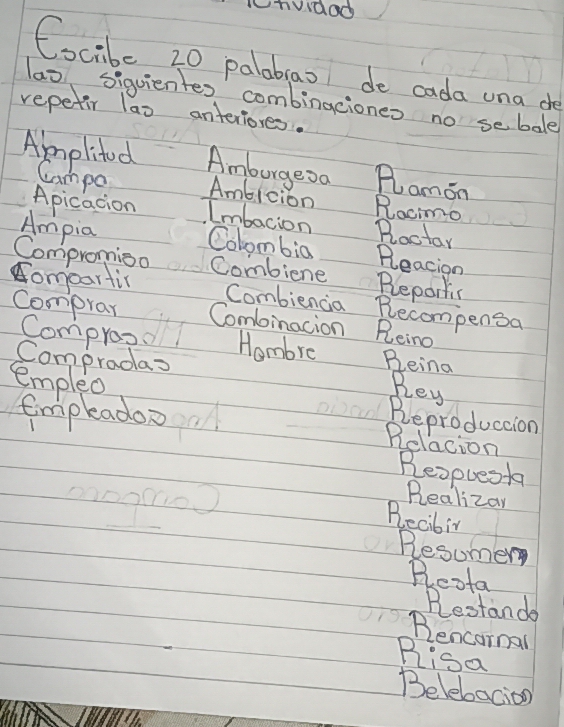 Actividad
Escribe 20 palabras de cada una de
las siguientes combinaciones no se bale
repetir las anteriores.
Amplitud
Campa
Apicacion
Ampia
Compromiso
Compartir
Comprar
Compras
Compradas
empleo
Empleados
Amburgesa
Ambicion
Imbacion
Colombia
Combiene
Combiencia
Combinacion
Hombre
Ramón
Racimo
Ractar
Reacion
Repartir
Recompensa
Reino
Reina
Rey
Reproduccion
Relacion
Respuesta
Realizar
Recibir
Resumen
Resta
Restando
Rencarnar
Risa
Belebacion